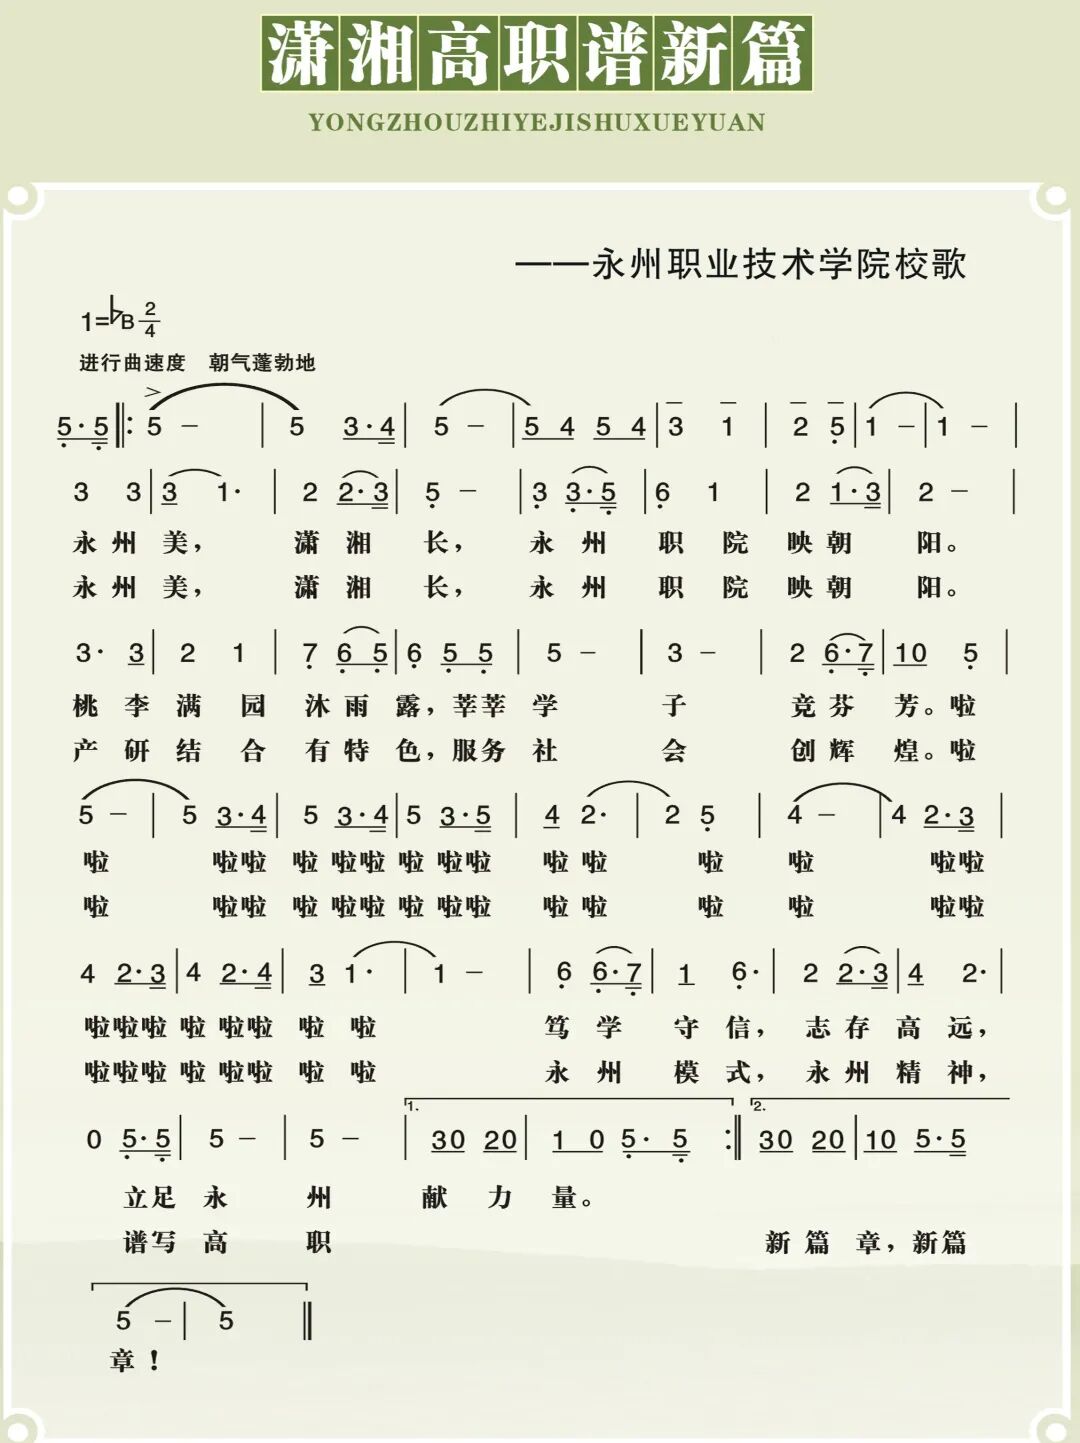 潇湘高职谱新篇
YONGZHOUZHIYEJISHUXUEYUAN
——永州职业技术学院校歌
1=♭B 2/4
进行曲速度 朝气蓬勃地
5·5 ‖: 5 – | 5 3·4 | 5 – | 5 4 5 4 | 3 1 | 2 5 | 1 – | 1 – |
3 3 | 3 1· | 2 2·3 | 5 – | 3 3·5 | 6 1 | 2 1·3 | 2 – |
永州美， 潇湘长， 永州职院映朝阳。
永州美， 潇湘长， 永州职院映朝阳。
3· 3 | 2 1 | 7 6 5 | 6 5 5 | 5 – | 3 – | 2 6·7 | 10 5 |
桃李满园沐雨露，莘莘学子竞芬芳。啦
产研结合有特色，服务社会创辉煌。啦
5 – | 5 3·4 | 5 3·4 | 5 3·5 | 4 2· | 2 5 | 4 – | 4 2·3 |
啦 啦啦 啦 啦啦 啦 啦啦 啦 啦 啦 啦 啦啦
啦 啦啦 啦 啦啦 啦 啦啦 啦 啦 啦 啦 啦啦
4 2·3 | 4 2·4 | 3 1· | 1 – | 6 6·7 | 1 6· | 2 2·3 | 4 2· |
啦啦啦 啦 啦啦 啦 啦 笃学守信，志存高远，
啦啦啦 啦 啦啦 啦 啦 永州模式，永州精神，
1. 2.
0 5·5 | 5 – | 5 – | 30 20 | 1 0 5· 5 :‖ 30 20 | 10 5·5
立足永州献力量。
谱写高职 新篇章，新篇
5 – | 5 ‖
章！